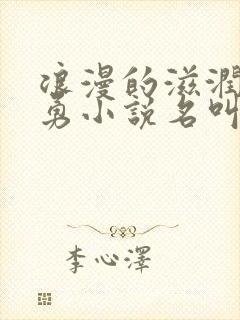 浪漫的滋潤
勇小説名叫
李心澤